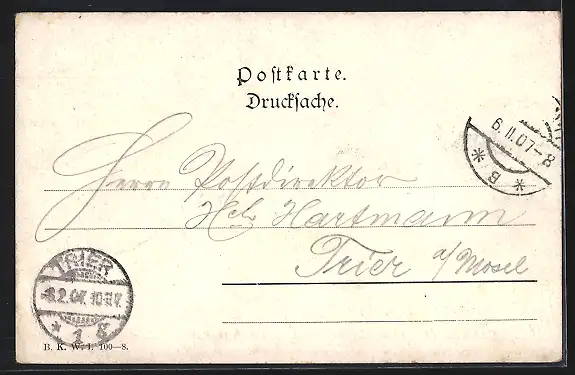 Postkarte.
Drucksache.
6.11.07-8
* B *
Herrn Postdirektor
Hch. Hartmann
Trier a/Mosel
TRIER
2.07. 10-11V.
* 1 g
B. K. W. I. 100—8.